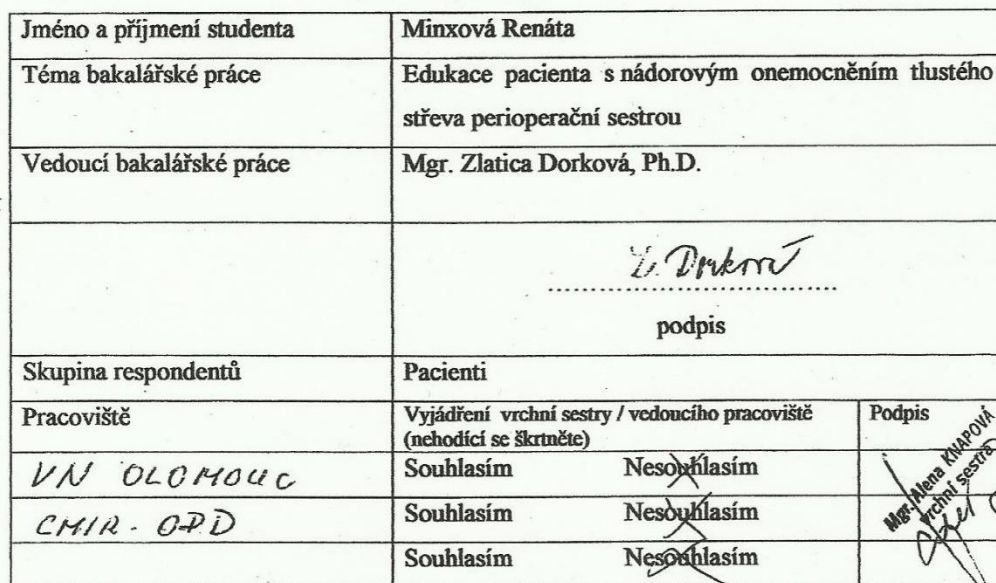 Jméno a příjmení studenta Minxová Renáta
Téma bakalářské práce Edukace pacienta s nádorovým onemocněním tlustého
střeva perioperační sestrou
Vedoucí bakalářské práce Mgr. Zlatica Dorková, Ph.D.
Z. Dorková
podpis
Skupina respondentů Pacienti
Pracoviště Vyjádření vrchní sestry / vedoucího pracoviště Podpis
(nehodící se škrtněte)
VN OLOMOUC Souhlasím Nesouhlasím
CMIR - OPD Souhlasím Nesouhlasím
Souhlasím Nesouhlasím
Mgr. Alena KNAPOVÁ
vrchní sestra